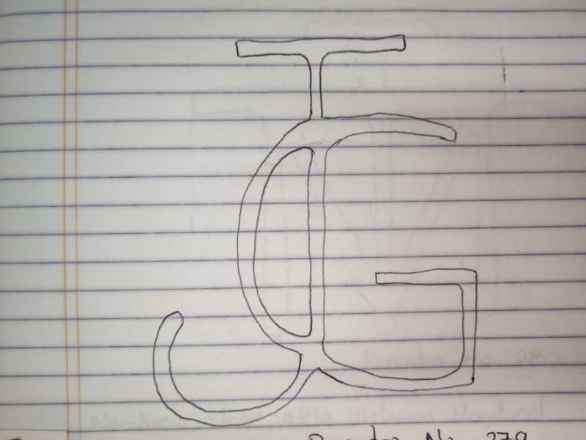 JG
No. 279